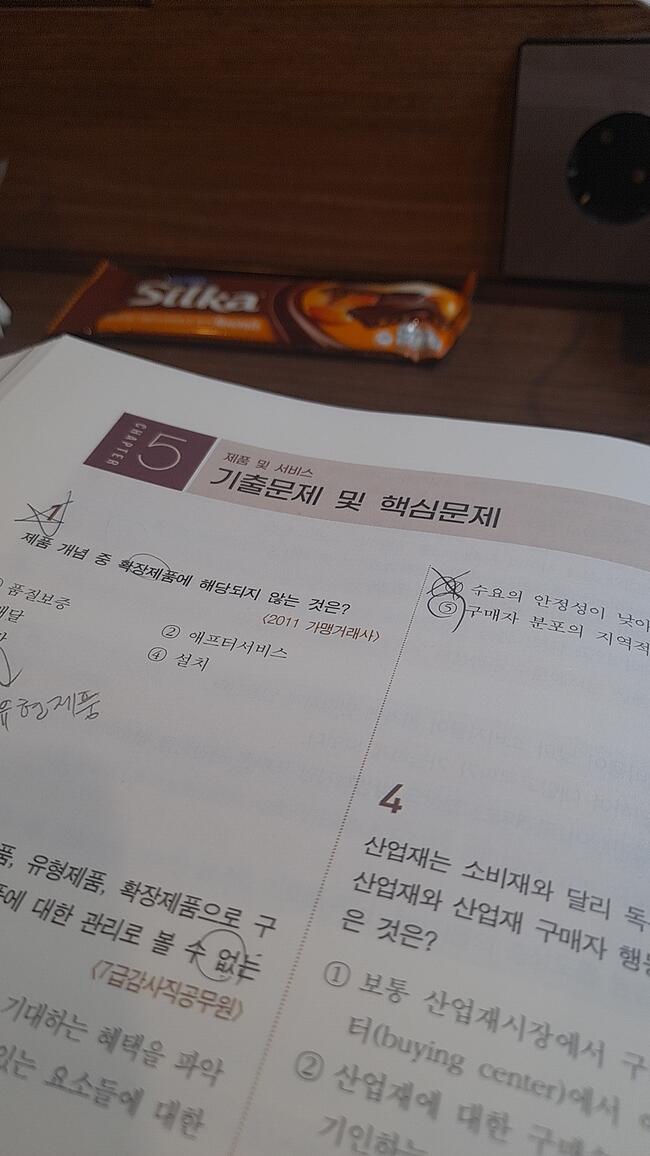 Silka
CHAPTER 5
제품 및 서비스
기출문제 및 핵심문제
1
제품 개념 중 확장제품에 해당되지 않는 것은?
〈2011 가맹거래사〉
품질보증
② 애프터서비스
배달
④ 설치
유형제품
유형제품, 확장제품으로 구
에 대한 관리로 볼 수 없는
〈7급감사직공무원〉
기대하는 혜택을 파악
있는 요소들에 대한
④ 수요의 안정성이 낮아
⑤ 구매자 분포의 지역적
4
산업재는 소비재와 달리 독
산업재와 산업재 구매자 행동
은 것은?
① 보통 산업재시장에서 구
터(buying center)에서
② 산업재에 대한 구매
기인하는